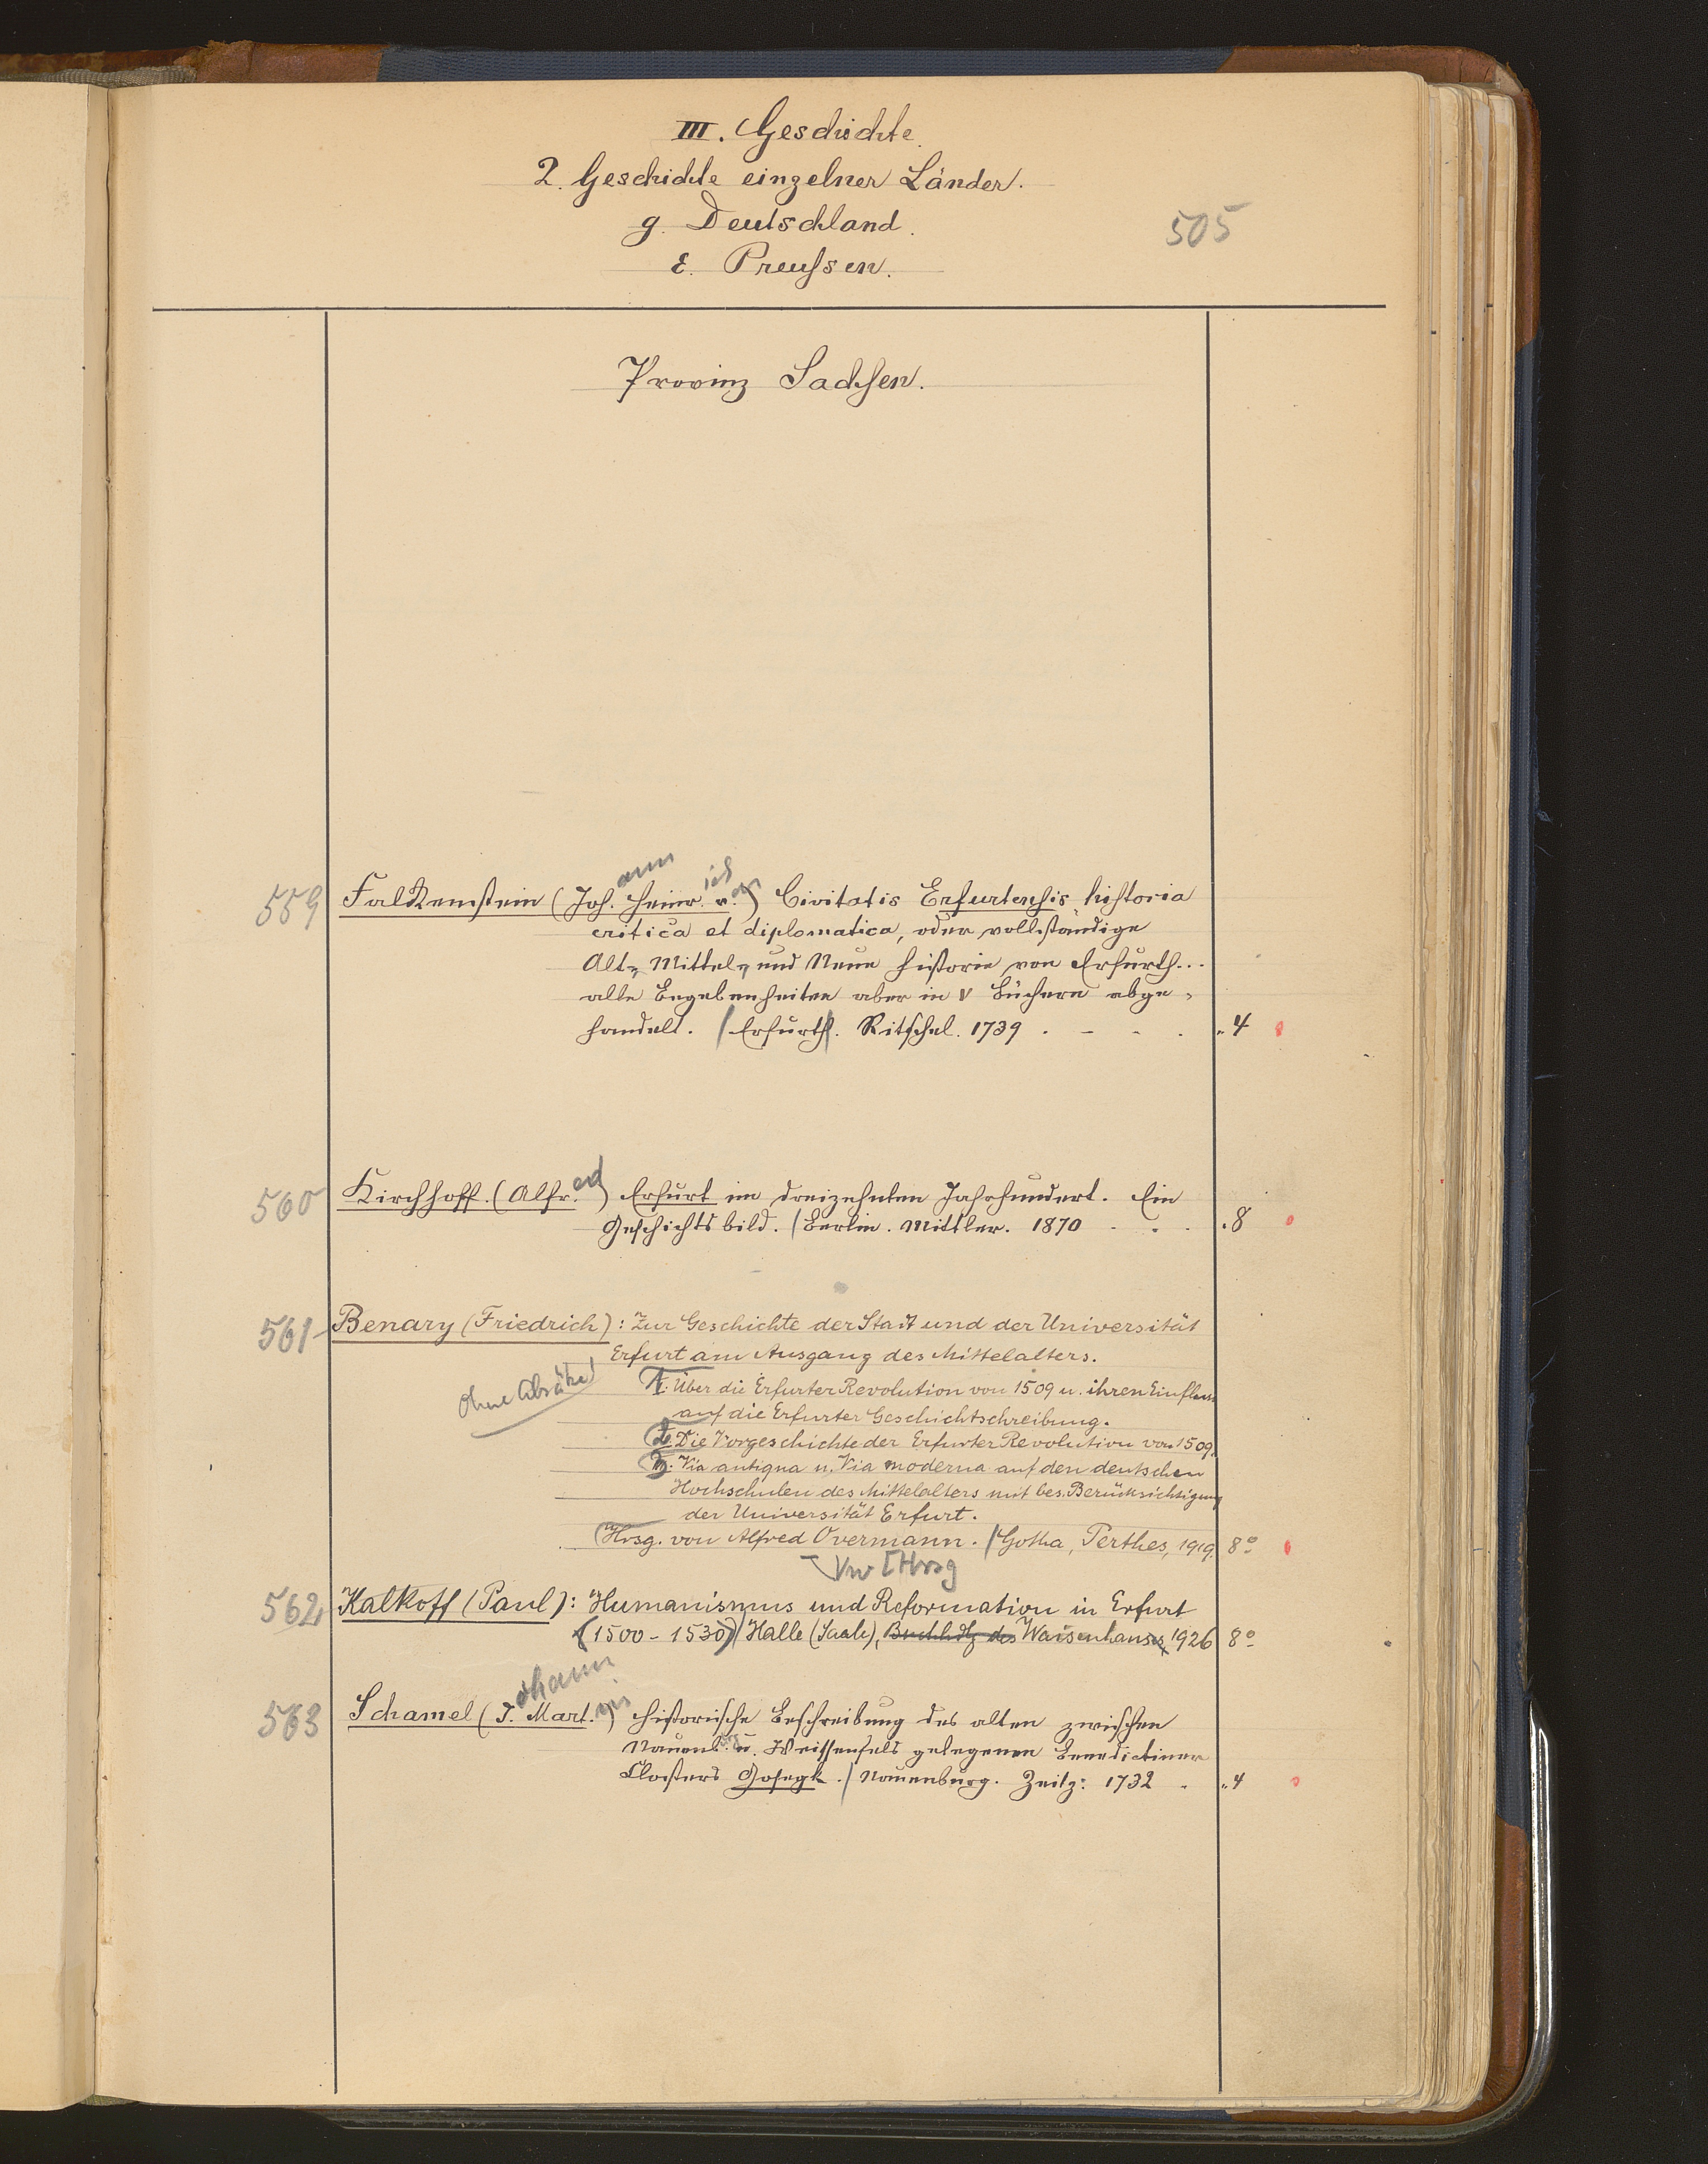 III. Geschichte.
2. Geschichte einzelner Länder.
g. Deutschland.
505
ε. Preußen.
Provinz Sachsen.
ann ich on
559 Falkenstein (Joh. Heinr. v.) Civitatis Erfurtensis historia
critica et diplomatica, oder vollständige
Alt-, Mittel- und Neue Historie von Erfurth...
alle Begebenheiten aber in V Büchern abge-
handelt. / Erfurth. Ritschel. 1739 . - . . „ 4
ed
560 Kirchhoff. (Alfr.) Erfurt im dreizehnten Jahrhundert. Ein
Geschichtsbild. / Berlin. Mittler. 1870 . . . „ 8
561 Benary (Friedrich): Zur Geschichte der Stadt und der Universität
Erfurt am Ausgang des Mittelalters.
ohne Absätze!
1. Über die Erfurter Revolution von 1509 u. ihren Einfluss
auf die Erfurter Geschichtschreibung.
2. Die Vorgeschichte der Erfurter Revolution von 1509.
3. Via antiqua u. Via moderna auf den deutschen
Hochschulen des Mittelalters mit bes. Berücksichtigung
der Universität Erfurt.
Hrsg. von Alfred Overmann. / Gotha, Perthes, 1919. 8°
Vw [Hrsg
562 Kalkoff (Paul): Humanismus und Reformation in Erfurt
(1500-1530) / Halle (Saale), Buchhdlg des Waisenhauses 1926 8°
ohann in
563 Schamel (J. Mart.) Historische Beschreibung des alten zwischen
Naumb. u. Weissenfels gelegenen Benedictiner
Closters Gosegk. / Naumburg. Zeitz: 1732 . „ 4